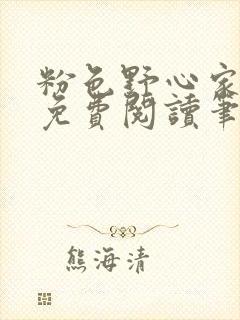 粉色野心家
免費閱讀筆
熊海清